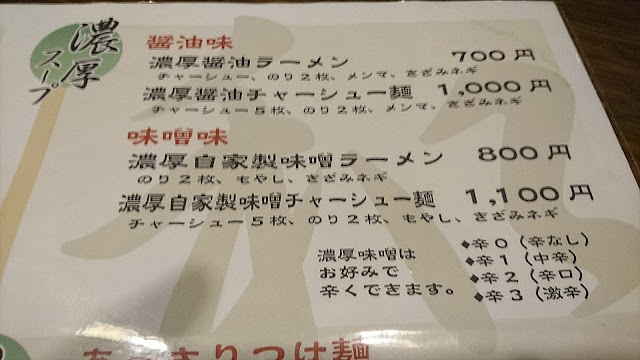 濃厚
スープ
醤油味
濃厚醤油ラーメン 700円
チャーシュー、のり2枚、メンマ、きざみネギ
濃厚醤油チャーシュー麺 1,000円
チャーシュー5枚、のり2枚、メンマ、きざみネギ
味噌味
濃厚自家製味噌ラーメン 800円
のり2枚、もやし、きざみネギ
濃厚自家製味噌チャーシュー麺 1,100円
チャーシュー5枚、のり2枚、もやし、きざみネギ
濃厚味噌は
お好みで
辛くできます。
◆辛0(辛なし)
◆辛1(中辛)
◆辛2(辛口)
◆辛3(激辛)
あっさりつけ麺